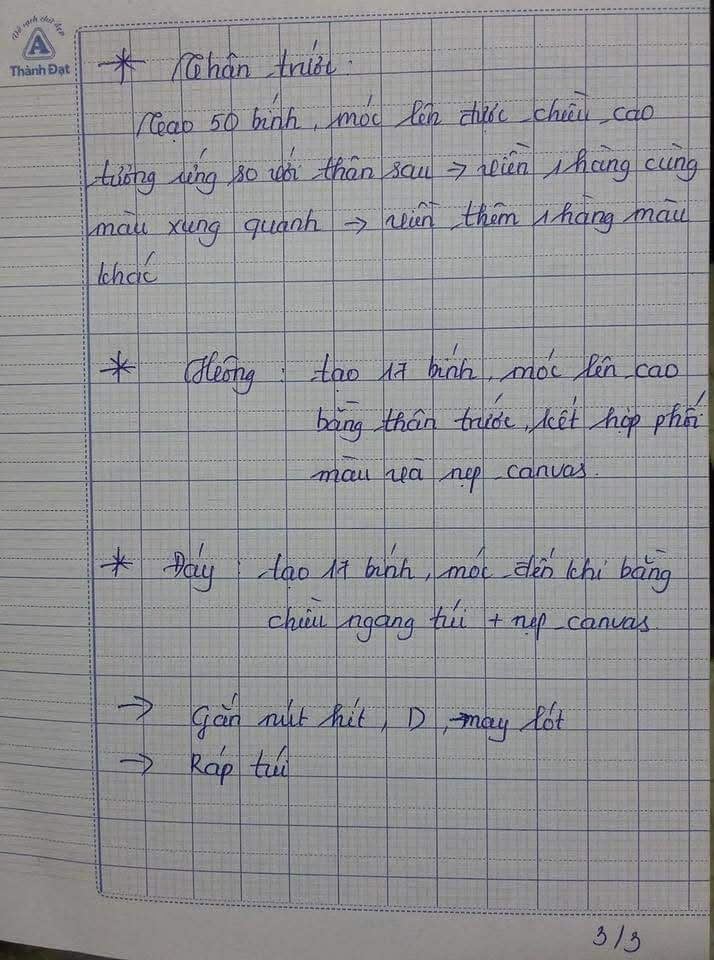 Vở sạch chữ đẹp
A
Thành Đạt
* Thân trước:
Tạo 50 bính, móc lên được chiều cao
tương ứng so với thân sau → viền 1 hàng cùng
màu xung quanh → viền thêm 1 hàng màu
khác
* Hông: tạo 17 bính, móc lên cao
bằng thân trước, kết hợp phối
màu và nẹp canvas.
* Đáy: tạo 17 bính, móc đến khi bằng
chiều ngang túi + nẹp canvas.
→ Gắn nút hít, D, may lót
→ Ráp túi
3/3